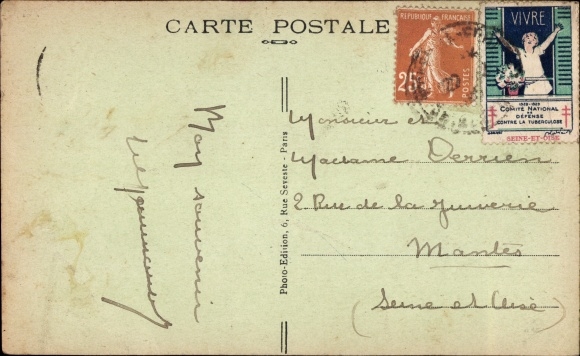 CARTE POSTALE
RÉPUBLIQUE FRANÇAISE
25c
POSTES
VIVRE
1928-1929
COMITÉ NATIONAL
DE
DÉFENSE
CONTRE LA TUBERCULOSE
SEINE-ET-OISE
Bon souvenir
Photo-Edition, 6, Rue Seveste - Paris
Monsieur et
Madame Derrien
2 Rue de la Juiverie
Mantes
(Seine et Oise)